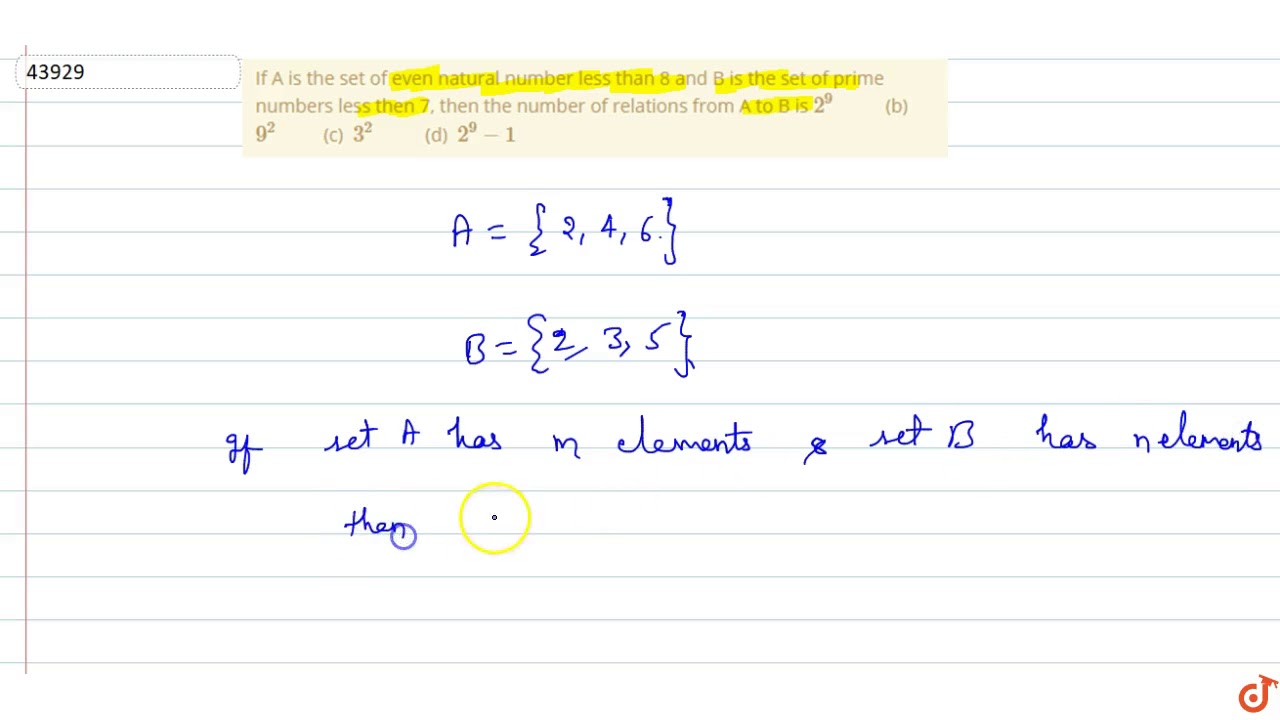 43929
If A is the set of even natural number less than 8 and B is the set of prime
numbers less then 7, then the number of relations from A to B is 2⁹ (b)
9² (c) 3² (d) 2⁹ − 1
A = { 2, 4, 6. }
B = { 2, 3, 5 }
If set A has m elements & set B has n elements
then